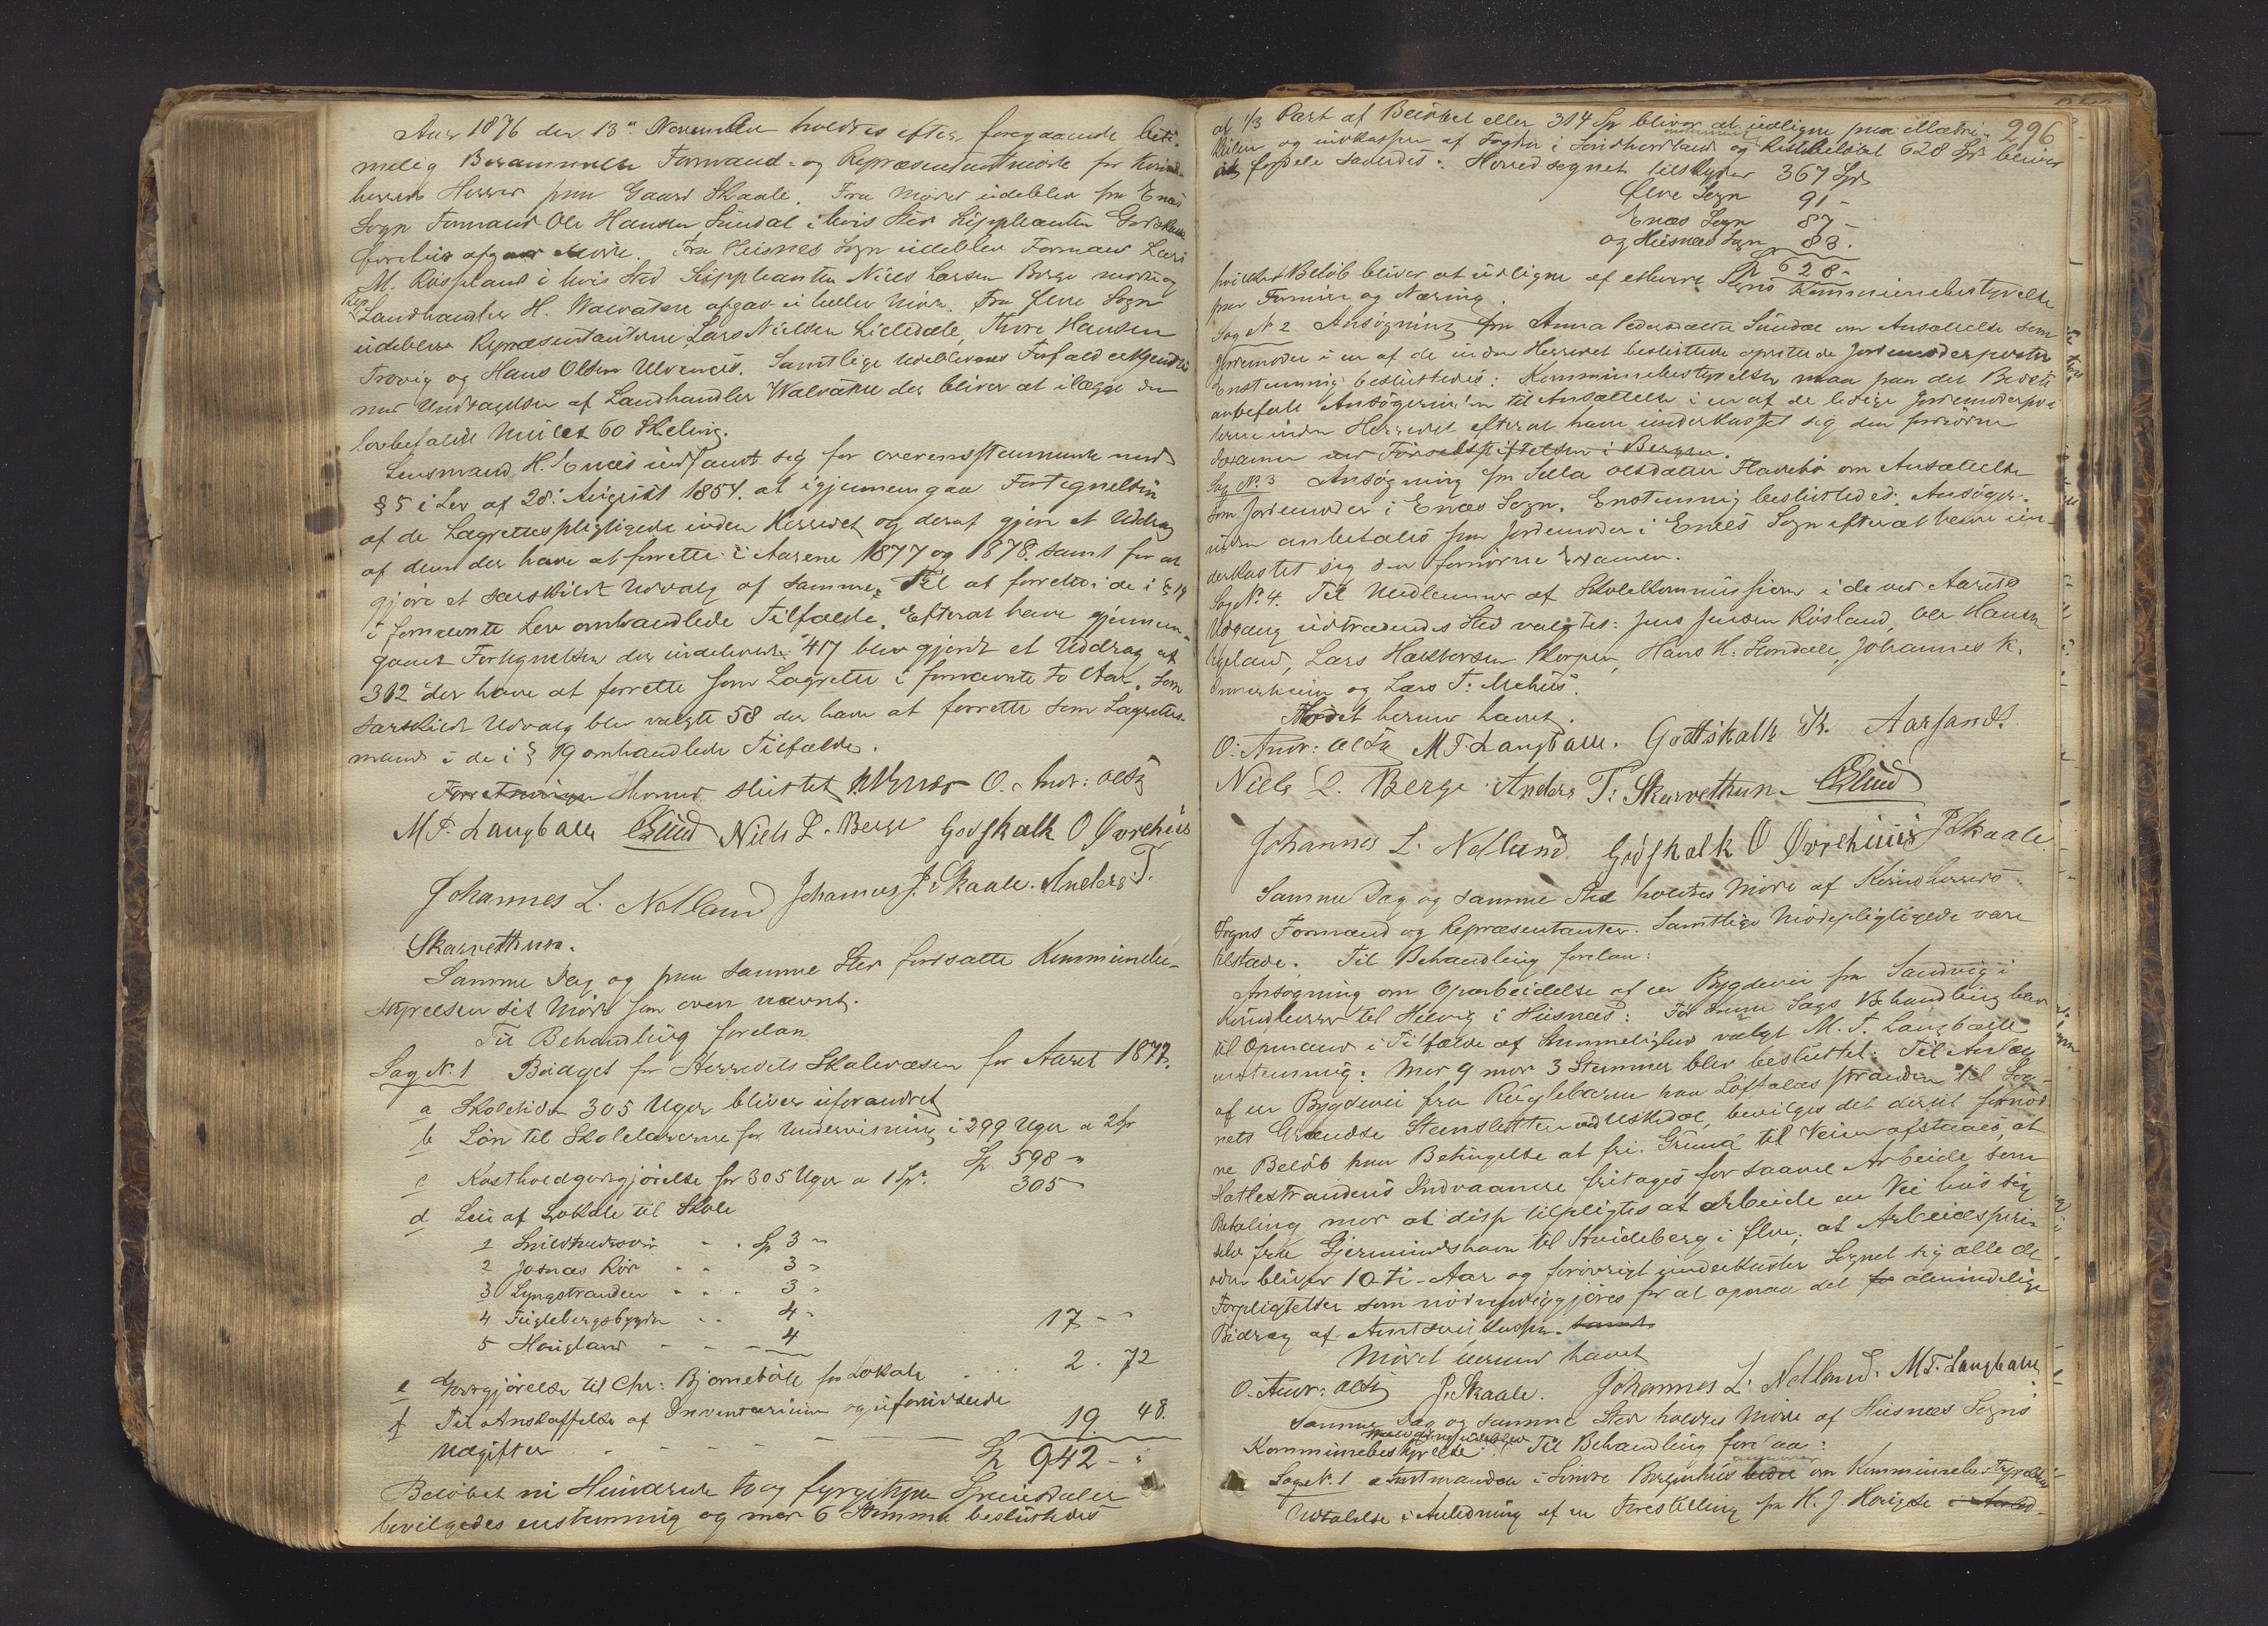 Aar 1876 den 13de November holdtes efter foregaaende beti-
melig Berammelse Formand- og Repræsentantmøde for Kvind-
herreds Herred paa Gaard Skaale. Fra Mødet udeblev fra Enæs
Sogn Formand Ole Hansen Sundal i hvis Sted Suppleanten Godskalk
Øvrehus afgav Møde. Fra Husnes Sogn udeblev Formand Lars
M. Røssland i hvis Sted Suppleanten Niels Larsen Berge mødte og
Rep. Landhandler H. Walvatne afgav ei heller Møde. Fra Ølve Sogn
udeblev Repræsentanterne Lars Nielsen Lilledale, Thore Hansen
Trovig og Hans Olsen Ulvenæs. Samtlige Udeblevnes Forfald erkjendtes
med Undtagelse af Landhandler Walvatne der bliver at ilægge den
lovbefalede Mulct 60 Skilling.
Lensmand H. Enæs indfandt sig for overensstemmende med
§ 5 i Lov af 28. August 1854. at igjennemgaa Fortegnelsen
af de Lagrettespligtigede inden Herredet og deraf gjøre et Uddrag
af dem der have at forrette i Aarene 1877 og 1878. samt for at
gjøre et særskildt Udvalg af samme, Til at forrette i de i § 19
i fornævnte Lov omhandlede Tilfælde. Efterat have gjennem-
gaaet Fortegnelsen der indeholdt 417 blev gjordt et Uddrag af
312 der have at forrette som Lagrette i fornævnte to Aar. Som
særskildt Udvalg blev valgte 58 der have at forrette som Lagrettes-
mænd i de i § 19 omhandlede Tilfælde.
Forretningen Hermed sluttet HEnæs O. Andr: Olsen
M T. Langballe Glund Niels L. Berge Godskalk O Øvrehus
Johannes L. Nelland Johannes J. Skaale. Anders T.
Skarvethun.
Samme Dag og paa samme Sted fortsatte Kommunebe-
styrelsen sit Møde som oven nævnt.
Til Behandling forelaa
Sag N. 1 Budget for Herredets Skolevæsen for Aaret 1877.
a Skoletiden 305 Uger bliver uforandret
b Løn til Skolelærerne for Undervisning i 299 Uger a 2 Sp Sp 598 "
c Kostholdgodtgjørelse for 305 Uger a 1 Sp. 305 "
d Leie af Lokale til Skole
1 - - Sp 3 "
2 Josnæs Rør - - 3 "
3 Lyngstranden - - - 3 "
4 Fuglebergsbygden - - 4 "
5 Haugland - - - 4 17 - "
e Godtgjørelse til Chr: Bjørnebøle for Lokale - - 2. 72
f Til Anskaffelse af Inventarium og uforudseede
Udgifter - - - - - 19. 48.
Sp 942 - "
Beløbet ni Hundrede to og fyrgetyve Speciedaler
bevilgedes enstemmig og med 6 Stemmer besluttedes
296
at 1/3 Part af Beløbet eller 314 Sp bliver at udligne paa Matri-
kulen og indkasseres af Fogden i Søndhordland og Restbeløbet 628 Spd bliver
at fordele saaledes: Hovedsognet tilskyder 367 Spd
Ølve Sogn 91 -
Enæs Sogn 87 -
og Husnæs Sogn 83.
Sp 628 -
hvilket Beløb bliver at udligne af ethvert Sogns Kommunebestyrelse
paa Formue og Næring.
Sag N. 2 Ansøgning fra Anna Pedersdatter Sundal om Ansættelse som
Jordemoder i en af de inden Herredet besluttede oprettede Jordemoderposter
Enstemmig besluttedes: Kommunebestyrelsen maa paa det Bedste
anbefale Ansøgerinden til Ansættelse i en af de ledige Jordemoderpo-
sterne inden Herredet efterat have underkastet sig den fornødne
Examen ved Fødselsstiftelsen i Bergen.
Sag N. 3 Ansøgning fra Sella Olsdatter Flatebø om Ansættelse
som Jordemoder i Enæs Sogn. Enstemmig besluttedes: Ansøger-
inden anbefales som Jordemoder i Enæs Sogn efterat have un-
derkastet sig den fornødne Examen.
Sag N. 4. Til Medlemmer af Skolekommissionen i de ved Aarets
Udgang udtrædendes Sted valgtes: Jens Jensen Røsland, Ole Hansen
Uglaud, Lars Halvorsen Skorpen, Hans H. Sundal, Johannes K.
Omvikheim og Lars T. Mehus.
Mødet hermed hævet.
O: Andr: Olsen M T. Langballe. Gottskalk K. Aarsand.
Niels L. Berge Anders T: Skarvethun. Glund
Johannes L. Nelland Godskalk O Øvrehuus J Skaale.
Samme Dag og samme Sted holdtes Møde af Kvindherreds
Sogns Formænd og Repræsentanter. Samtlige Mødepligtigede vare
tilstæde. Til Behandling forelaa:
Ansøgning om Oparbeidelse af en Bygdevei fra Sandvig i
Kvindherred til Hilvig i Husnæs: Før denne Sags Behandling blev
til Opmand i Tilfælde af Stemmelighed valgt M. T. Langballe
enstemmig: Med 9 mod 3 Stemmer blev besluttet: Til Anlæg
af en Bygdevei fra Rugleberen paa Løftalas stranden til Sog-
nets Grændse Stensletten ved Uskedal, bevilges det dertil fornød-
ne Beløb paa Betingelse at fri Grund til Veien afstaaes, at
Hattestrandens Indvaanere fritages for saavel Arbeide som
Betaling mod at disse tilpligtes at arbeide en Vei hos sig
selv fra Gjermundshavn til Kvideberg i Ølve; at Arbeidsperi-
oden bliver 10 ti-Aar og forøvrigt underkaster Sognet sig alle de
Forpligtelser som nødvendiggjøres for at opnaa det for almindelige
Bidrag af Amtsveikassen. samt
Mødet hermed hævet
O. Andr: Olsen J. Skaale. Johannes L. Nelland. M T. Langballe
Samme Dag og samme Sted holdtes Møde af Husnæs Sogns
Kommunebestyrelse. Til Behandling forelaa:
Sag N. 1 Amtmanden i Søndre Bergenhus beder om Kommunebestyrelsens
Udtalelse i Anledning af en Forestilling fra H. J. Hougse i Anled-